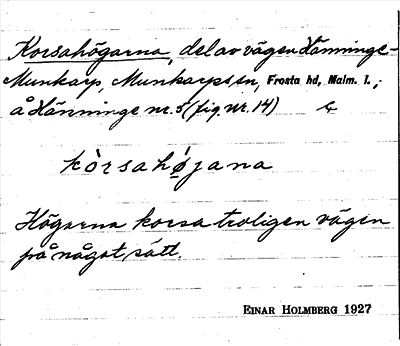 Korsahögarna, del av vägen Hänninge-
Munkarp, Munkarps sn, Frosta hd, Malm. l.;
å Hänninge nr. 5 (fig. nr. 14)
kòrsahø̀jana
Högarna korsa troligen vägen
på något sätt.
EINAR HOLMBERG 1927